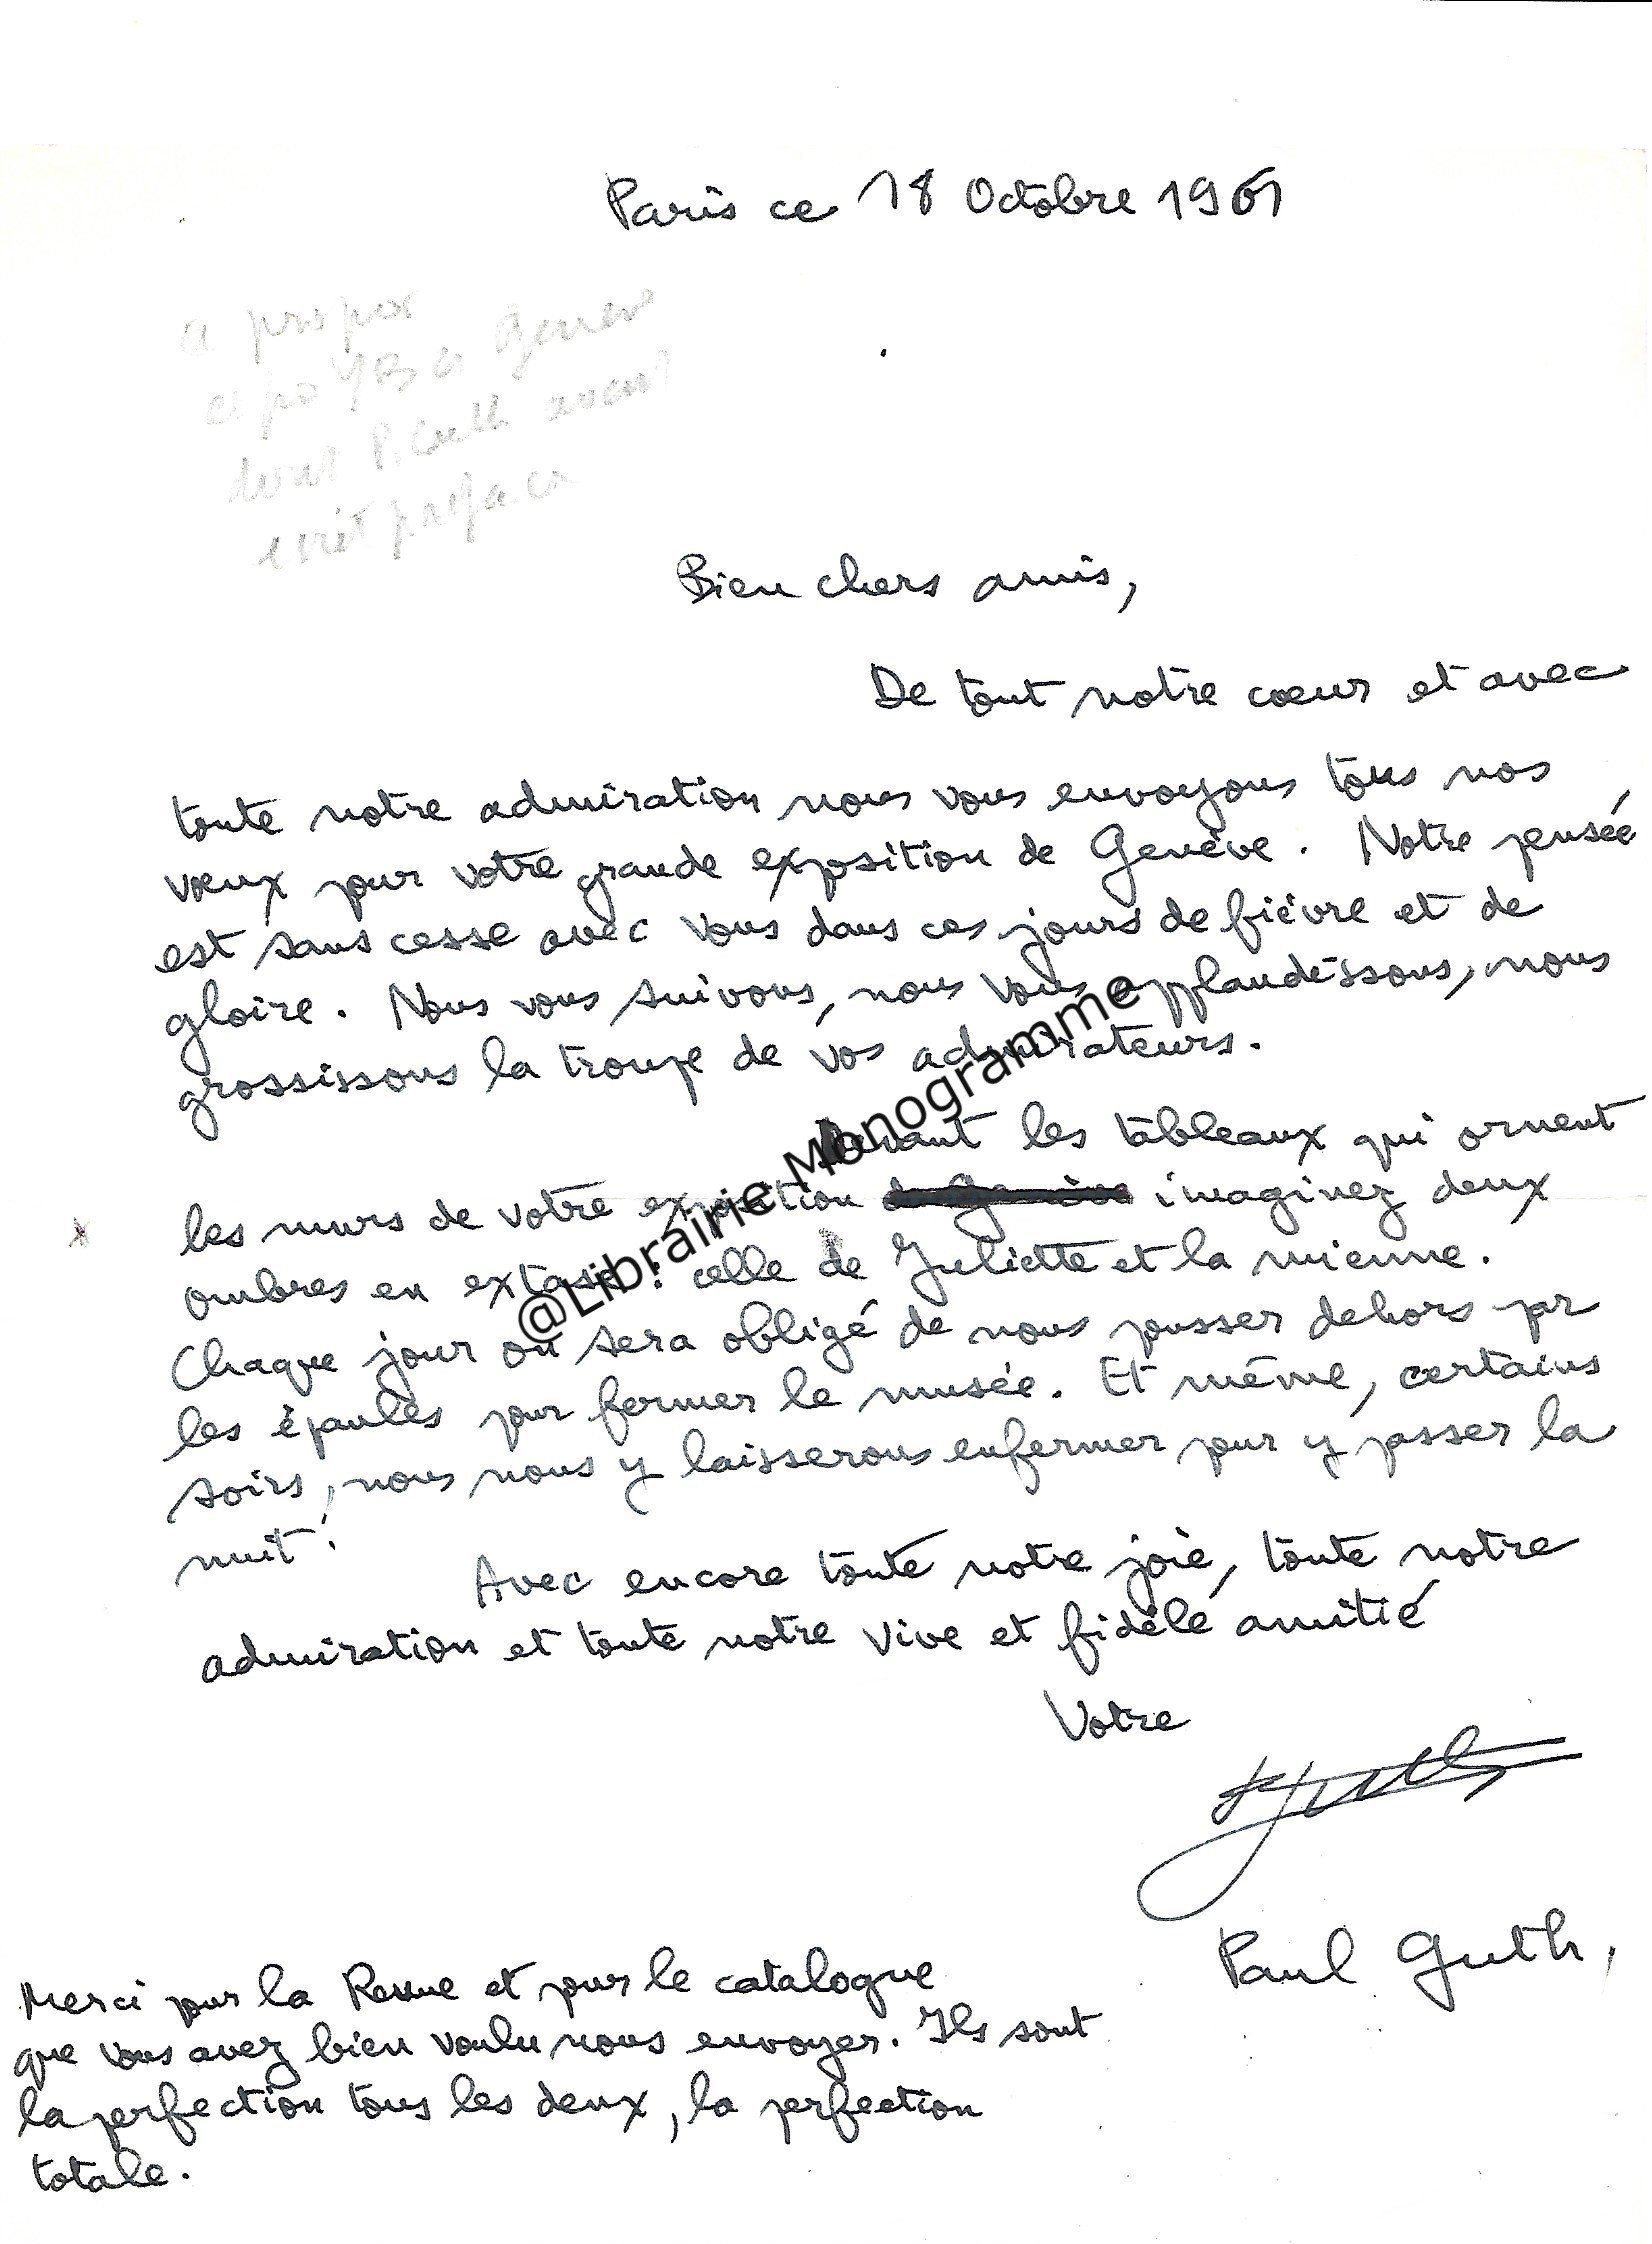 Paris ce 18 Octobre 1961
a propos
expo YB a Geneve
dont P. Guth avait
écrit preface
Bien chers amis,
De tout notre cœur et avec
toute notre admiration nous vous envoyons tous nos
vœux pour votre grande exposition de Genève. Notre pensée
est sans cesse avec vous dans ces jours de fièvre et de
gloire. Nous vous suivons, nous vous applaudissons, nous
grossissons la troupe de vos admirateurs.
Devant les tableaux qui ornent
les murs de votre exposition de Genève imaginez deux
ombres en extase : celle de Juliette et la mienne.
Chaque jour on sera obligé de nous pousser dehors par
les épaules pour fermer le musée. Et même, certains
soirs, nous nous y laisserons enfermer pour y passer la
nuit !
Avec encore toute notre joie, toute notre
admiration et toute notre vive et fidèle amitié
Votre
PGuth
Paul Guth,
Merci pour la Revue et pour le catalogue
que vous avez bien voulu nous envoyer. Ils sont
la perfection tous les deux, la perfection
totale.
@Librairie Monogramme